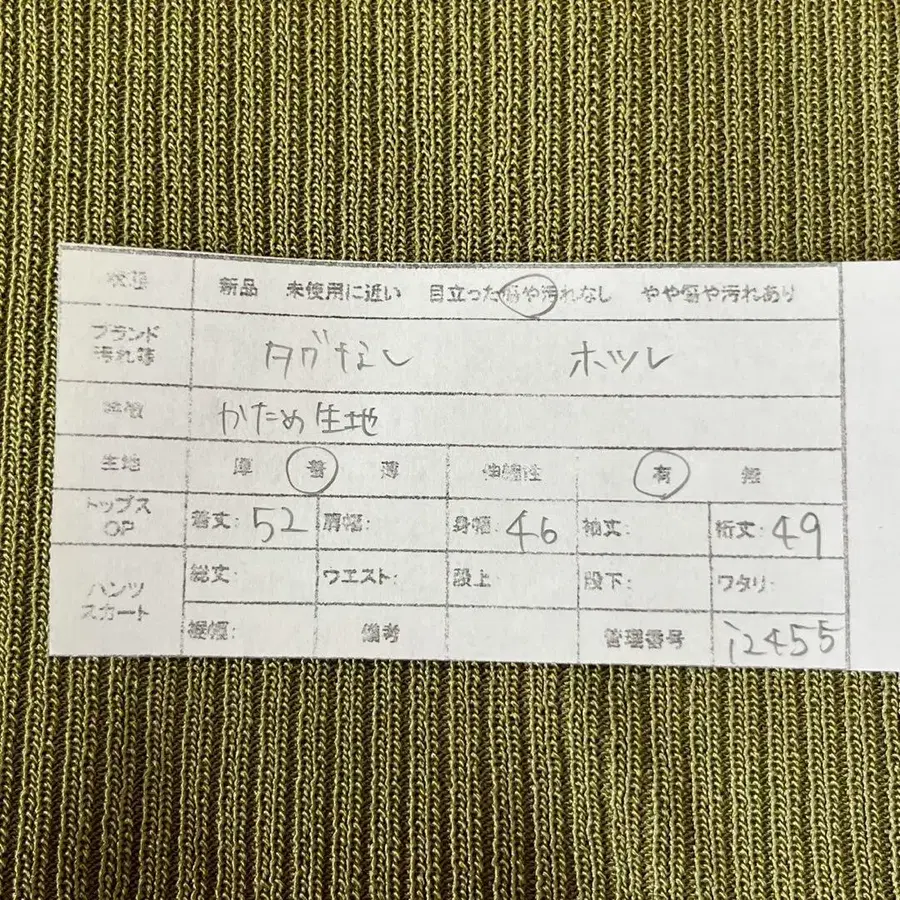 状態 新品 未使用に近い 目立った傷や汚れなし やや傷や汚れあり
ブランド
汚れ等 タグなし ホツレ
かため生地
生地 厚 普 薄 伸縮性 有 無
トップス
OP 着丈: 52 肩幅: 身幅: 46 袖丈: 裄丈: 49
パンツ
スカート 総丈: ウエスト: 股上: 股下: ワタリ:
裾幅: 備考 管理番号 i2455